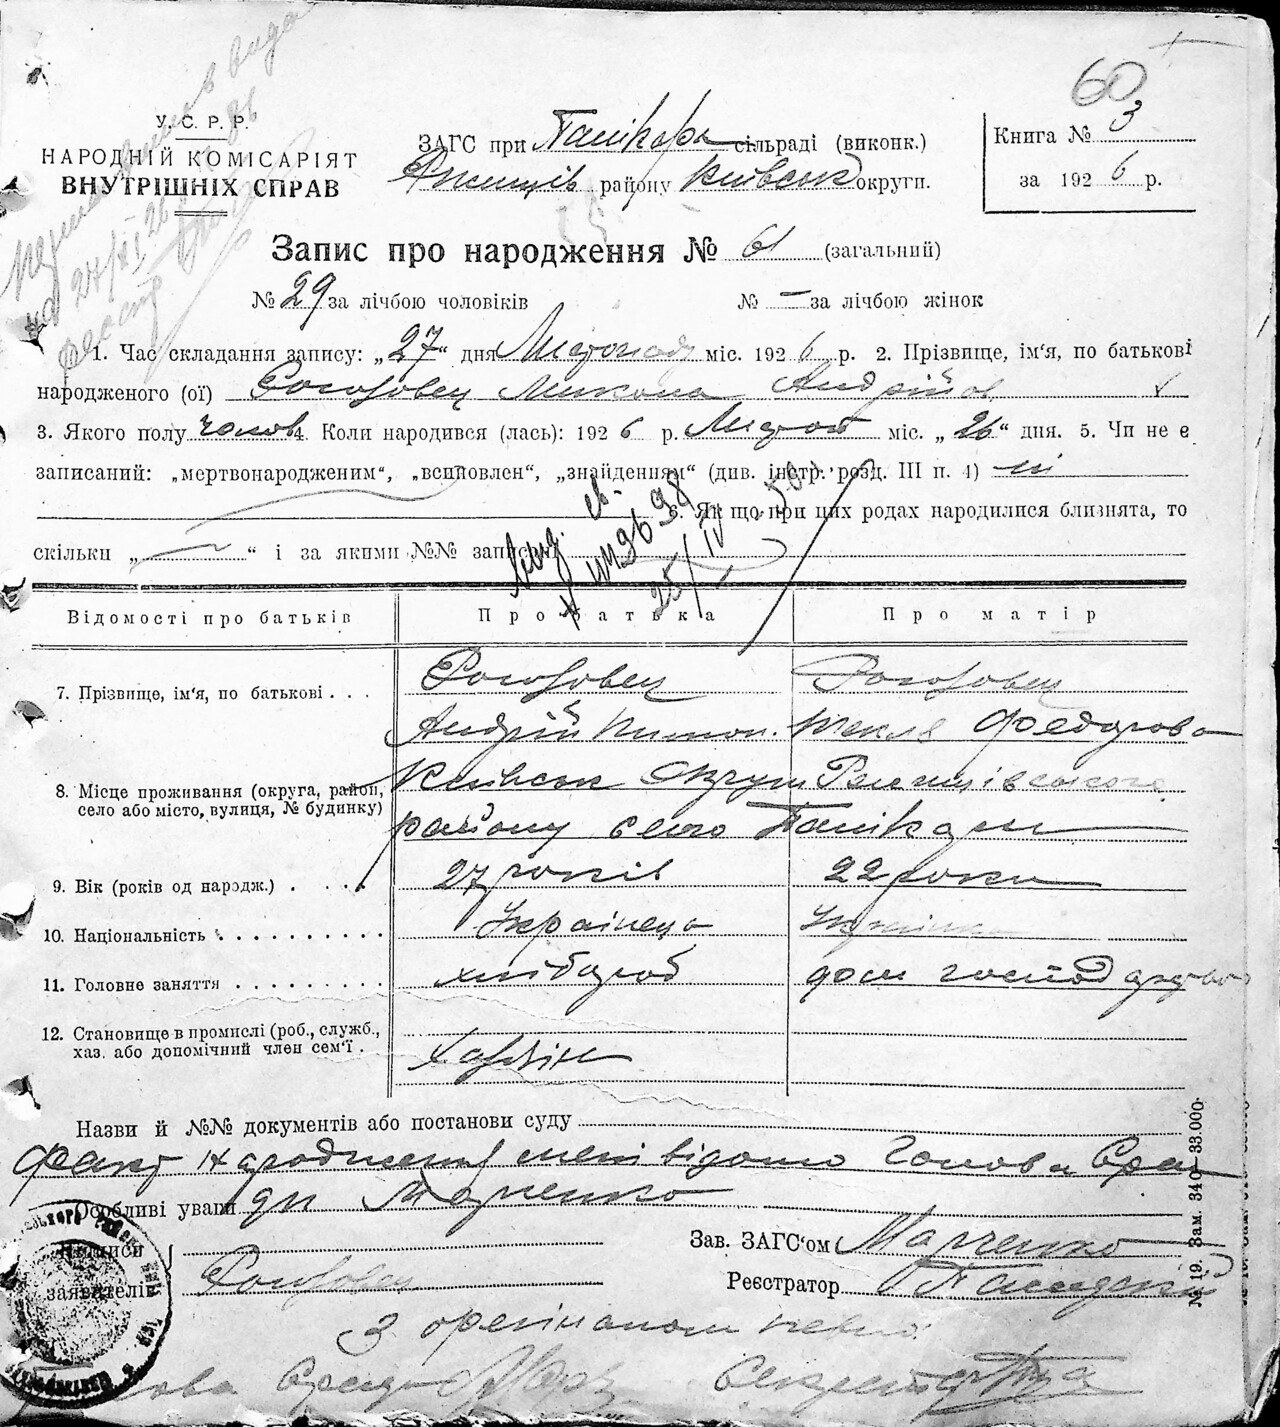 60
У. С. Р. Р.
НАРОДНІЙ КОМІСАРІЯТ
ВНУТРІШНІХ СПРАВ
ЗАГС при сільраді (виконк.)
району Київськ округи.
Книга № 3
за 1926 р.
Запис про народження № 61 (загальний)
№ 29 за лічбою чоловіків № — за лічбою жінок
1. Час складання запису: „27“ дня Листопад міс. 1926 р. 2. Прізвище, ім'я, по батькові
народженого (ої) Рогозовец Микола Андрійов
3. Якого полу чолов 4. Коли народився (лась): 1926 р. Листоп міс. „26“ дня. 5. Чи не є
записаний: „мертвонародженим“, „всиновлен“, „знайденям“ (див. інстр. розд. III п. 4) ні
6. Як що при цих родах народилися близнята, то
скільки „ “ і за якими №№ записані
25/IV
Відомості про батьків Про батька Про матір
7. Прізвище, ім'я, по батькові . . . Рогозовец Рогозовец
Андрій Федорова
8. Місце проживання (округа, район, село або місто, вулиця, № будинку) Київськ Округ Ржищівського
району село
9. Вік (років од народж.) . . . . 27 років 22 роки
10. Національність . . . . . . . . . . Українець Українка
11. Головне заняття . . . . . . . . . хлібороб дом господарство
12. Становище в промислі (роб., служб., хаз. або допомічний член сем'ї . Хазяїн
Назви й №№ документів або постанови суду
Факт народження мені відомо Голова Сра-
Особливі уваги ди Марченко
Підписи заявителів Рогозовец
Зав. ЗАГС'ом Марченко
Реєстратор
З орегіналом
Секретар
№ 19. Зам. 340—33.000.